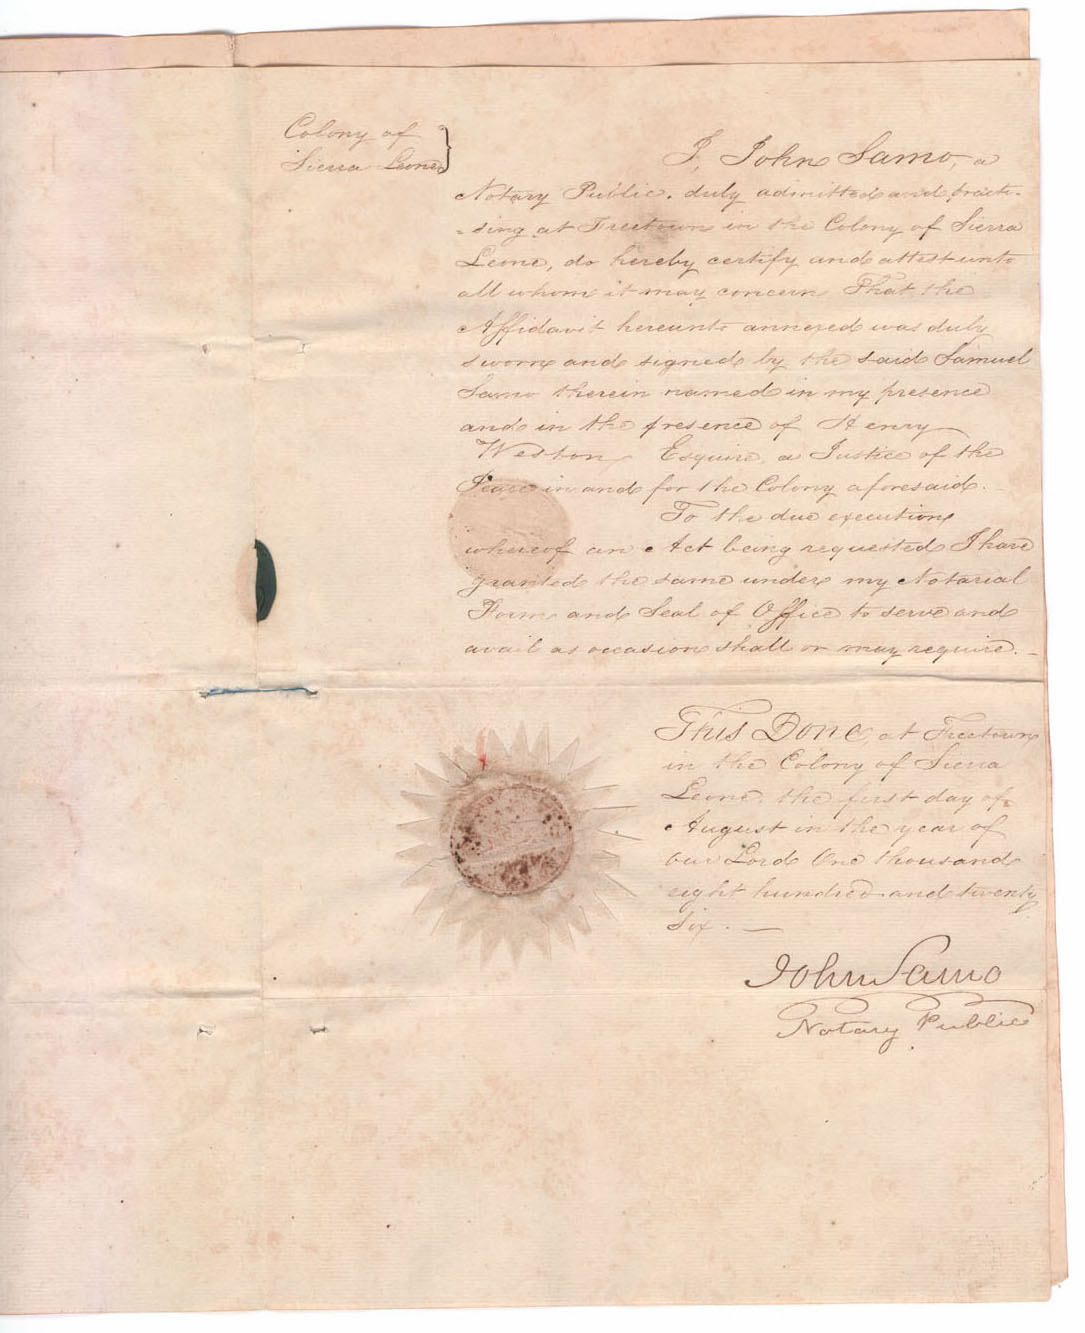 Colony of
Sierra Leone
I, John Samo, a
Notary Public, duly admitted and practi-
-sing at Freetown in the Colony of Sierra
Leone, do hereby certify and attest unto
all whom it may concern That the
Affidavit hereunto annexed was duly
sworn and signed by the said Samuel
Samo therein named in my presence
and in the presence of Henry
Weston Esquire, a Justice of the
Peace in and for the Colony aforesaid.
To the due execution
whereof an Act being requested I have
granted the same under my Notarial
Form and Seal of Office to serve and
avail as occasion shall or may require.
This Done at Freetown
in the Colony of Sierra
Leone, the first day of
August in the year of
our Lord One thousand
eight hundred and twenty
six.
John Samo
Notary Public